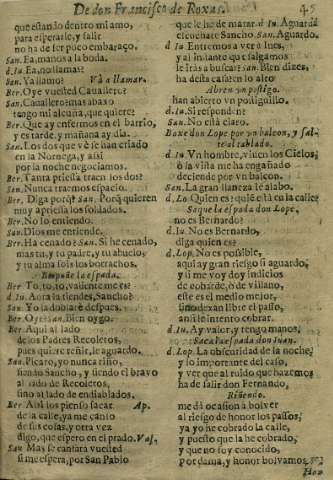 De don Francisco de Roxas. 45
que estan lo dentro mi amo,
para esperarle, y salir
no ha de ser poco embaraço.
San. Ea, manos a la boda.
d. Iu. Ea, no llamas?
San. Ya llamo! Và a llamar.
Ber. Oye vuested Cauallero?
San. Cauallero? mas abaxo
tengo mi alcuña, que quiere?
Ber. Que ay enfermos en el barrio,
y es tarde, y mañana ay dia.
San. Los dos que vè se han criado
en la Noruega, y assi
por la noche negociamos.
Ber. Tanta priessa traen los dos?
San. Nunca traemos espacio.
Ber. Diga porq? San. Porq quieren
muy apriessa los soldados.
Ber. No lo entiendo.
San. Dios me entiende.
Ber. Ha cenado? San. Si he cenado,
mas tu, y tu padre, y tu abuelo,
y tu alma sois los borrachos.
Empuña la espada.
Ber. To, to, to, valiente me es?
d. Iu. Aora la tiendes, Sancho?
San. Yo la doblarè despues.
Ber. Oye? San. Bien oygo.
Ber. Aqui al lado
de los Padres Recoletos,
pues quiere reñir, le aguardo.
San. Picaro, yo nunca riño,
siendo Sancho, y siendo el bravo
al lado de Recoletos,
sino al lado de endiablados.
Ber. Assi los pienso sacar Ap.
de la calle, ya me canso
de sus cosas, y otra vez
digo, que espero en el prado. Vas.
San. Mas se cansàra vuested
si me espera, por San Pablo
que le he de matar. d. Iu. Aguarda.
escuchate Sancho. San. Aguardo.
d. Iu. Entremos a ver a Ines,
y al instante que salgamos
le iràs a buscar. San. Bien dizes,
ha desta casa en lo alto
Abren vn postigo.
han abierto vn postiguillo.
d. Iu. Si respondẽn:
San. No està claro.
Baxe don Lope por vn balcon, y salte al tablado.
d. Iu. Vn hombre, viuen los Cielos,
ò la vista me ha engañado
deciende por vn balcon.
San. La gran llaneza le alabo.
d. Lo. Quien es? quiẽ està en la calle?
Saque la espada don Lope,
no es Bernardo?
d. Iu. No es Bernardo,
diga quien es?
d. Lop. No es possible,
aqui ay gran riesgo si aguardo,
y si me voy doy indicios
de cobarde, ò de villano,
este es el medio mejor,
sino dexan libre el passo,
assi le intento cobrar.
d. Iu. Ay valor, y tengo manos,
Saca la espada don Iuan.
d. Lop. La obscuridad de la noche,
y lo importante del caso,
y ver que al ruido que hazemos
ha de salir don Fernando,
Riñendo.
me dà ocasion a bolver
al riesgo de honor los passos,
ya yo he cobrado la calle,
y puesto que la he cobrado,
y que no soy conocido,
por dama, y honor bolvamos.